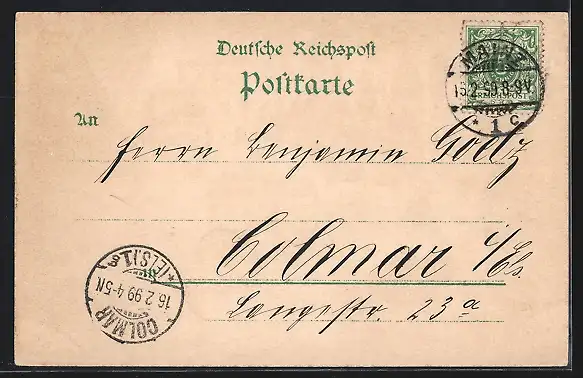 Deutsche Reichspost
Postkarte
An
Herrn Benjamin
Colmar i/Els.
Langestr. 23 a
MAINZ
15.2.99.8-9V.
* 1 c
COLMAR
16.2.99.4-5N
*(ELS)1.